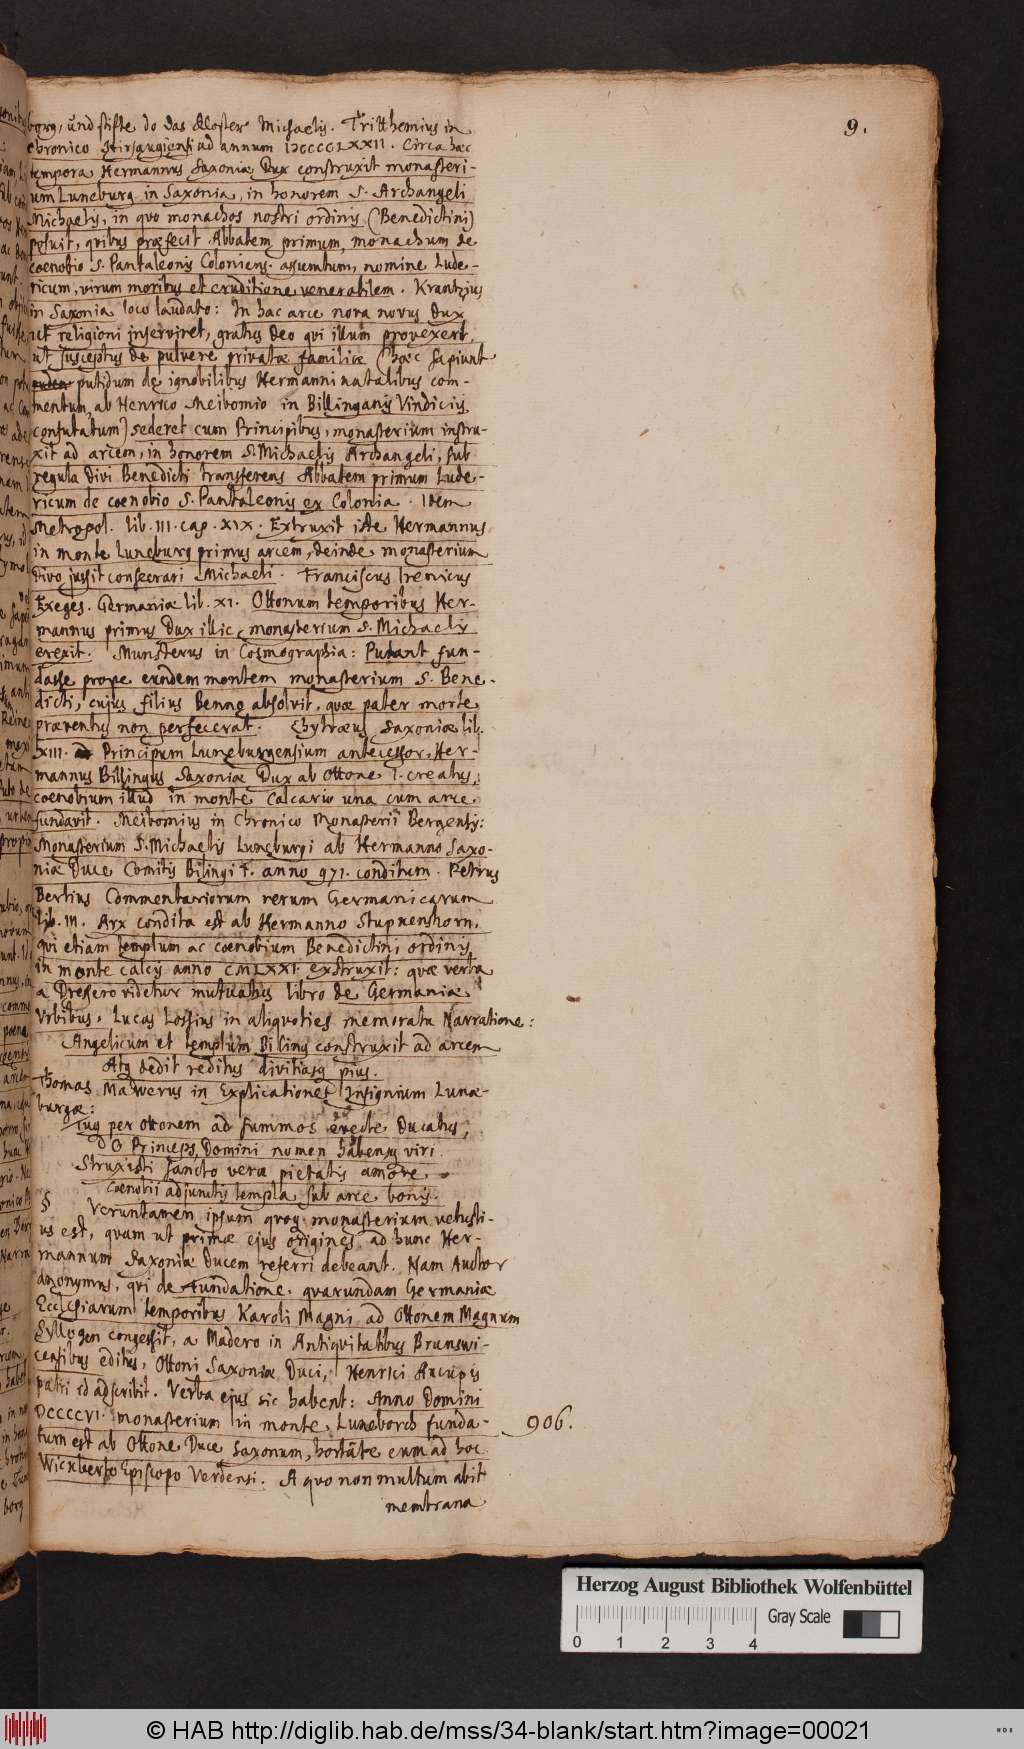 9.
borg, und stifte do das Kloster Michaelis. Trithemius in
Chronico Hirsaugiensi ad annum DCCCCLXXII. Circa hæc
tempora Hermannus Saxoniæ Dux construxit monasteri-
um Luneburg in Saxonia, in honorem S. Archangeli
Michaelis, in quo monachos nostri ordinis (Benedictini)
posuit, quibus præfecit Abbatem primum, monachum de
coenobio S. Pantaleonis Coloniens. assumtum, nomine Lude-
ricum, virum moribus et eruditione venerabilem. Krantzius
in Saxonia loco laudato: In hac arce nova novus Dux
ut religioni inserviret, gratus Deo qui illum provexerat,
ut susceptus de pulvere privatæ familiæ (hæc sapiunt
putidum de ignobilibus Hermanni natalibus com-
mentum, ab Henrico Meibomio in Billinganis Vindiciis
confutatum) sederet cum Principibus, monasterium instru-
xit ad arcem, in honorem S. Michaelis Archangeli, sub
regula divi Benedicti transferens Abbatem primum Lude-
ricum de coenobio S. Pantaleonis ex Colonia. Idem
Metropol. lib. III. cap. XIX. Extruxit iste Hermannus
in monte Luneburg primus arcem, deinde monasterium
Divo jussit consecrari Michaeli. Franciscus Irenicus
Exeges. Germaniæ lib. XI. Ottonum temporibus Her-
mannus primus Dux illic monasterium S. Michaelis
erexit. Munsterus in Cosmographia: Putant fun-
dasse prope eundem montem monasterium S. Bene-
dicti, cujus filius Benno absolvit, quæ pater morte
præventus non perfecerat. Chytræus Saxoniæ lib.
XIII. Principum Luneburgensium antecessor, Her-
mannus Billingus Saxoniæ Dux ab Ottone I. creatus,
coenobium illud in monte Calcario una cum arce
fundavit. Meibomius in Chronico Monasterii Bergensis:
Monasterium S. Michaelis Luneburgi ab Hermanno Saxo-
niæ Duce Comitis Bilingi f. anno 971. conditum. Petrus
Bertius Commentariorum rerum Germanicarum
lib. III. Arx condita est ab Hermanno Stupnenshorn,
qui etiam templum ac coenobium Benedictini ordinis
in monte calcis anno CMLXXI. exstruxit: quæ verba
a Dressero videtur mutuatus libro de Germaniæ
Urbibus. Lucas Lossius in aliquoties memorata Narratione:
Angelicum et templum Biling construxit ad arcem
Atq dedit reditus divitiasq pius.
Thomas Mawerus in Explicationes Insignium Lunæ-
burgæ:
Tuq per Ottonem ad summos evecte Ducatus,
O Princeps, Domini nomen habensq viri.
Struxisti sancto veræ pietatis amore
Coenobii adjunctis templa sub arce bonis.
§ Veruntamen ipsum quoq monasterium vetusti-
us est, quam ut primæ ejus origines ad hunc Her-
mannum Saxoniæ Ducem referri debeant. Nam Auctor
anonymus, qui de Fundatione quarundam Germaniæ
Ecclesiarum temporibus Karoli Magni ad Ottonem Magnum
Syllogen congessit, a Madero in Antiquitatibus Brunswi-
censibus editus, Ottoni Saxoniæ Duci, Henrici Aucupis
patri id adscribit. Verba ejus sic habent: Anno Domini
DCCCCVI. monasterium in monte Luneborch funda-
tum est ab Ottone Duce Saxonum, hortante eum ad hoc
906.
Wickberto Episcopo Verdensi. A quo non multum abit
membrana
Herzog August Bibliothek Wolfenbüttel
Gray Scale
0 1 2 3 4
© HAB http://diglib.hab.de/mss/34-blank/start.htm?image=00021